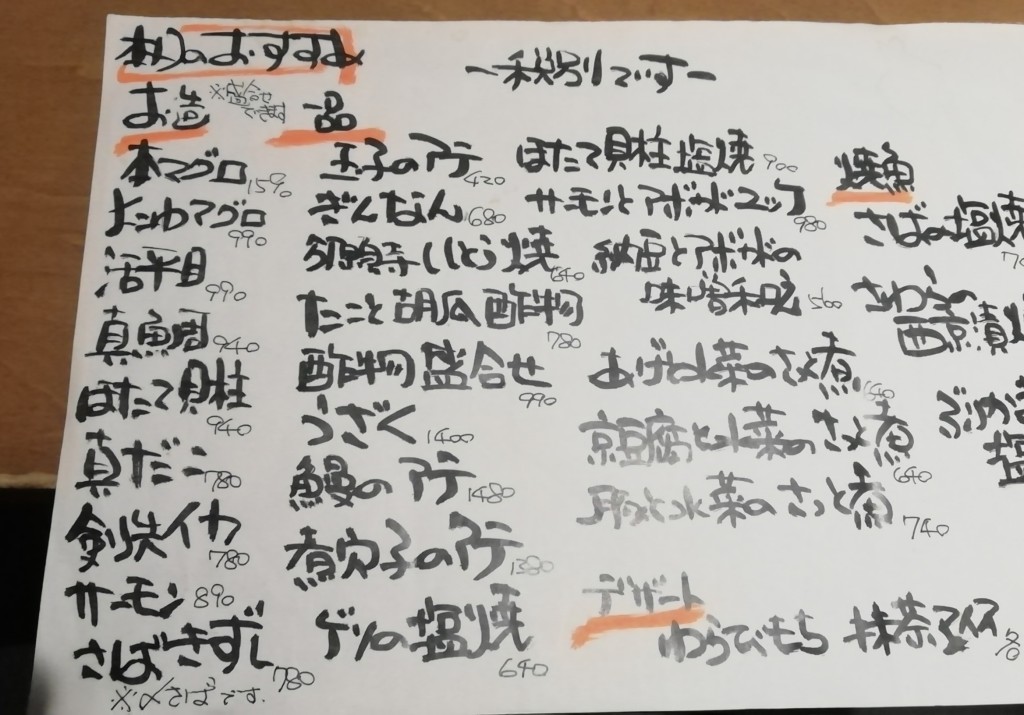 本日のおすすめ
ー税別ですー
お造
※盛合せ
できます
本マグロ 1590
よこわマグロ 990
活平目 990
真鯛 940
ほたて貝柱 940
真だこ 780
剣先イカ 780
サーモン 890
さばきずし 780
※〆さばです.
一品
玉子のアテ 420
ぎんなん 680
万願寺ししとう焼 640
たこと胡瓜酢物 780
酢物盛合せ 990
うざく 1400
鰻のアテ 1480
煮穴子のアテ 1380
ゲソの塩焼 640
ほたて貝柱塩焼 900
サーモンとアボカドユッケ 980
納豆とアボカドの
味噌和え 500
あげと水菜のさっと煮 640
京豆腐と水菜のさっと煮 640
豚と水菜のさっと煮 740
デザート
わらびもち 抹茶アイス
焼魚
さばの塩焼
さわらの
西京漬
ぶりの
塩